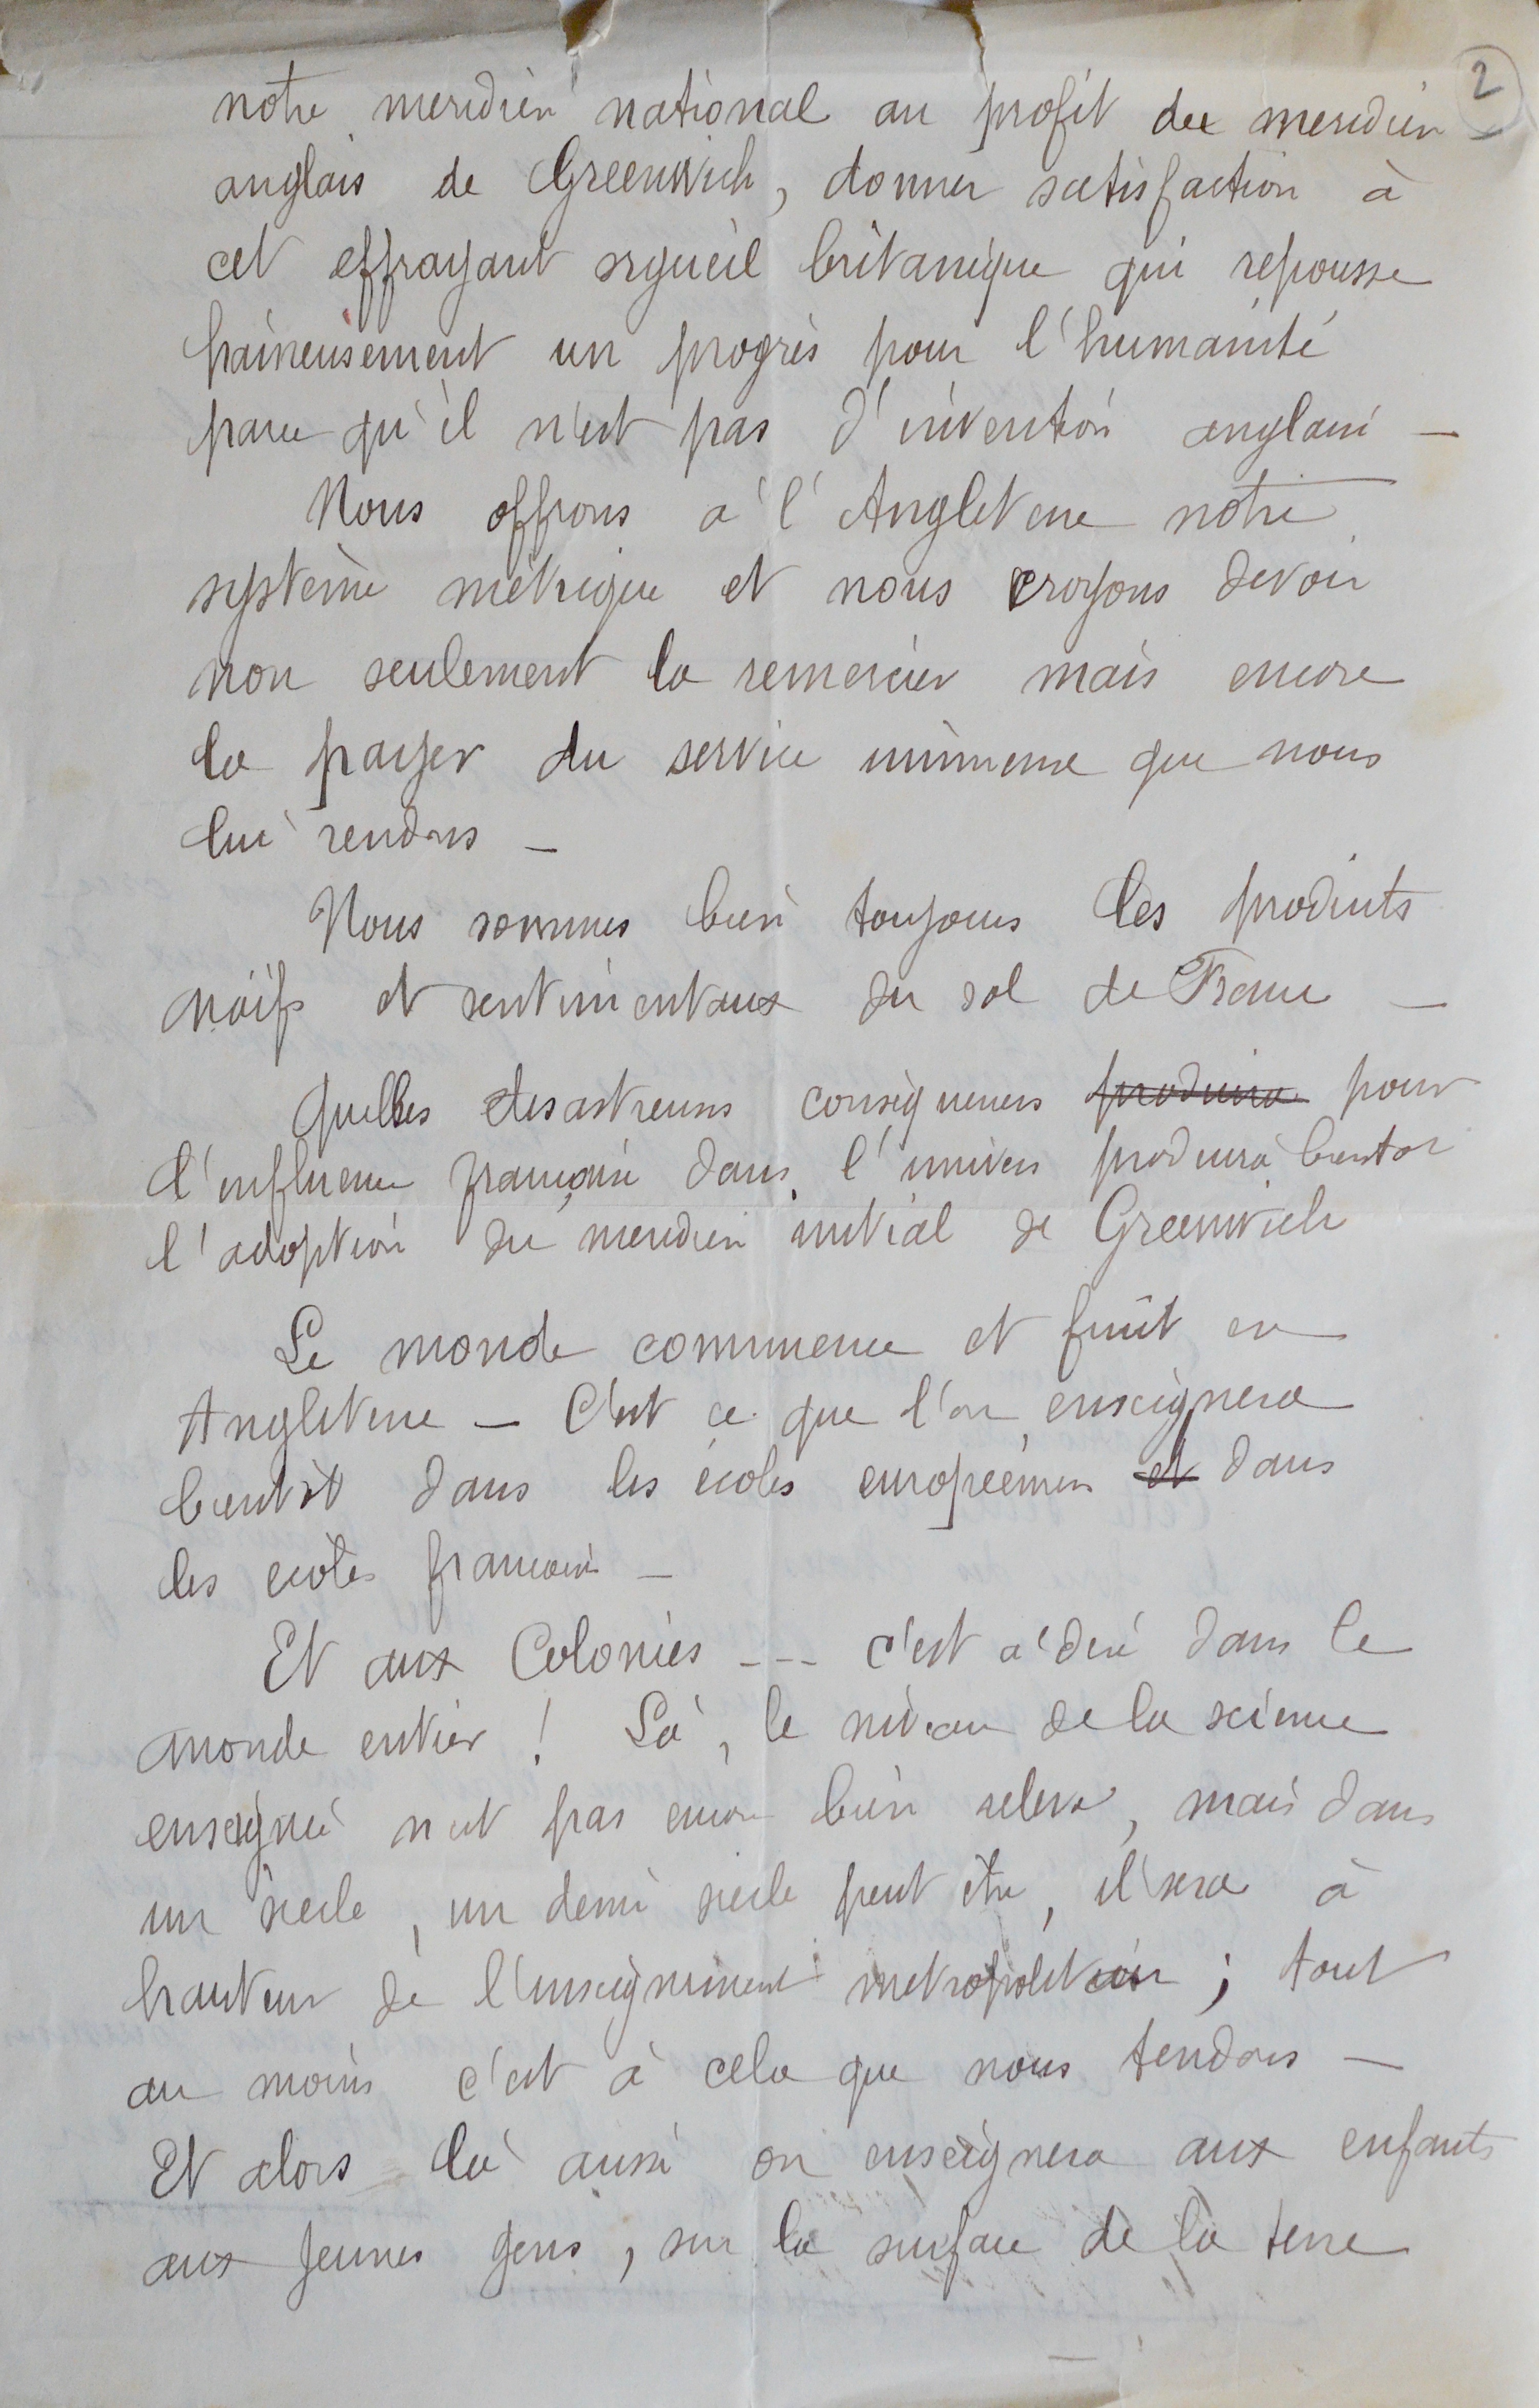 2
notre meridien national au profit du meridien
anglais de Greenwich, donner satisfaction à
cet effrayant orgueil britanique qui repousse
haineusement un progrès pour l'humanité
parce qu'il n'est pas d'invention anglaise —
Nous offrons à l'Angleterre notre
système métrique et nous croyons devoir
non seulement la remercier mais encore
la payer du service immense que nous
lui rendons —
Nous sommes bien toujours les produits
naïfs et sentimentaux du sol de France —
Quelles desastreuses conséquences produira pour
l'influence française dans l'univers produira bientot
l'adoption du meridien initial de Greenwich
Le monde commence et finit en
Angleterre — C'est ce que l'on enseignera
bientôt dans les écoles européennes et dans
les ecoles francaises —
Et aux Colonies --- c'est à dire dans le
monde entier ! Là, le niveau de la science
enseignée n'est pas encore bien relevé, mais dans
un siecle, un demi siecle peut être, il sera à
hauteur de l'enseignement metropolitain ; tout
au moins c'est à cela que nous tendons —
Et alors là aussi on enseignera aux enfants
aux jeunes gens, sur la surface de la terre